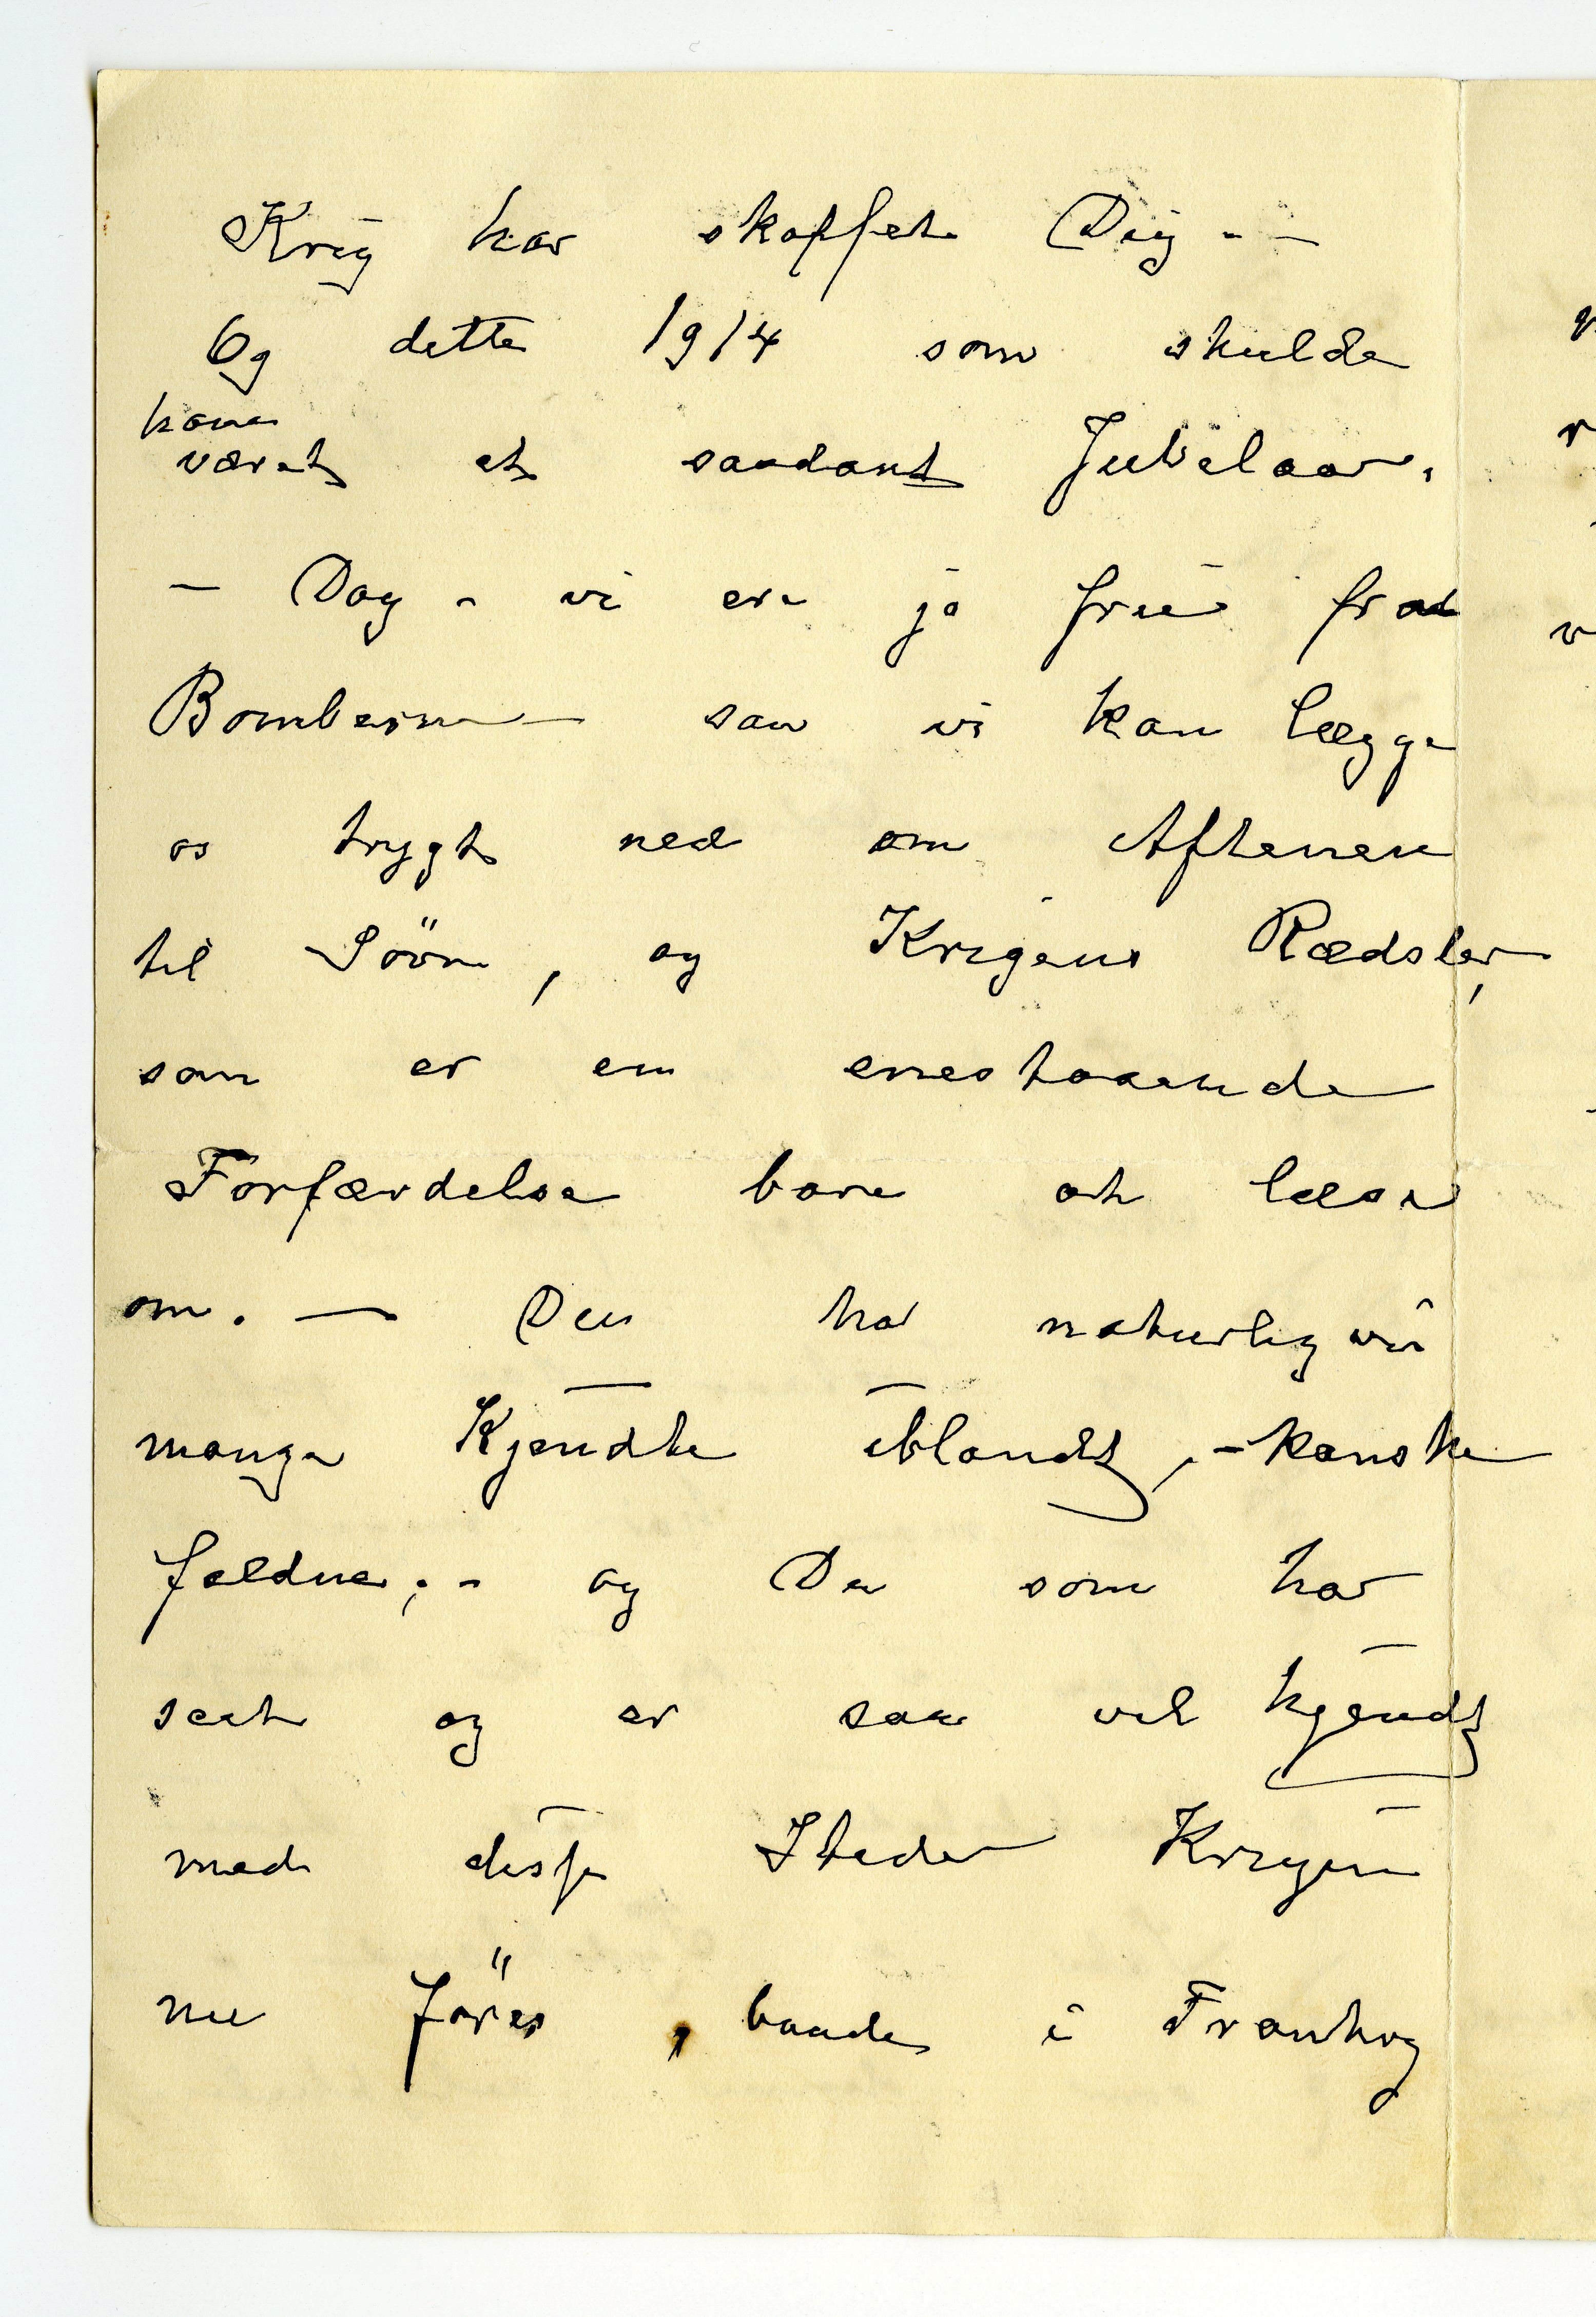 Krig har skaffet Dig - -
Og dette 1914 som skulde
have
været et saadant Jubelaar.
- Dog - vi er jo frie fra
Bomberne - saa vi kan lægge
os trygt ned om Aftenen
til Sövn, og Krigens Rædsler,
som er en enestaaende
Forfærdelse bare at læse
om. — Du har naturligvis
mange Kjendte iblandt, - kanske
faldne; - og Du som har
seet og er saa vel kjendt
med disse Steder Krigen
nu föres, baade i Frankrig